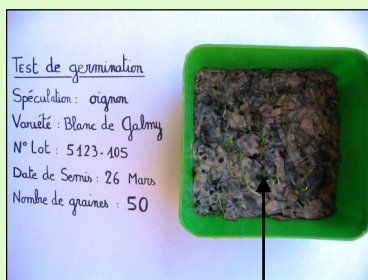 Test de germination
Spéculation : oignon
Variété : Blanc de Galmy
N° Lot : 5123-105
Date de Semis : 26 Mars
Nombre de graines : 50